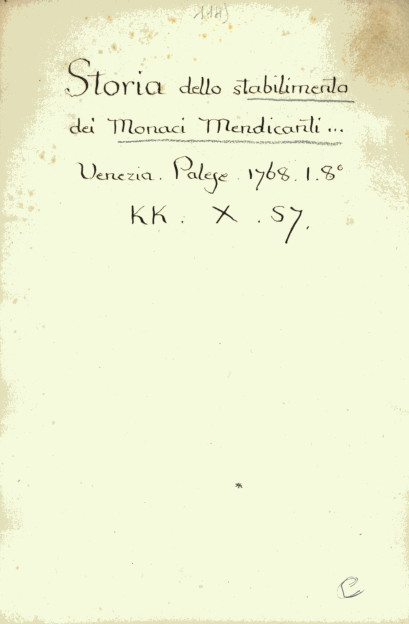 Storia dello stabilimento
dei Monaci Mendicanti...
Venezia. Palese. 1768. 1. 8°
KK. X. 57.